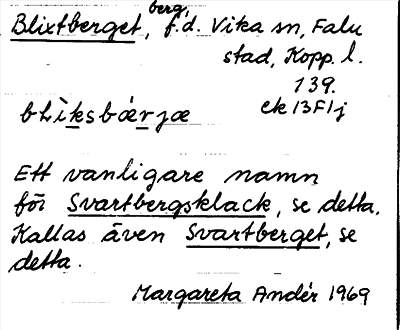 Blixtberget, berg, f.d. Vika sn, Falu
stad, Kopp. l.
139.
ek 13F1j
bLìksbær̀jæ
Ett vanligare namn
för Svartbergsklack, se detta.
Kallas även Svartberget, se
detta.
Margareta Andér 1969